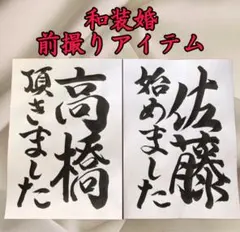 和装婚
前撮りアイテム
佐藤
始めました
高橋
頂きました